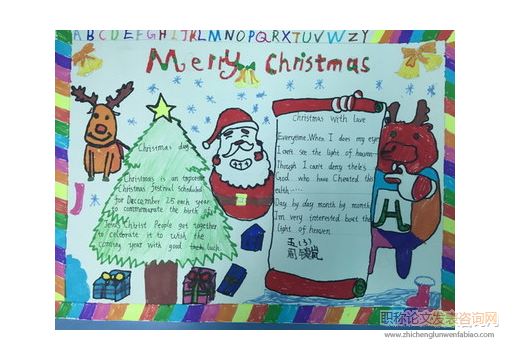 A B C D E F G H I J K L M N O P Q R X T U V W Z Y
Merry Christmas
Christmas day
Christmas is an
Christmas festival scheduled
for December 25 each year
to commemorate the birth of
Jesus Christ People get together
to celebrate is to wish the
coming year with good luck.
Christmas with love
Everyone. When I does my eye
I can't see the light of heaven
Though I can't deny
God who have Cheated this
Day by day month by month
I'm very interested
light of heaven
五(3)
职称论文发表咨询网
www.zhichenglunwenfabiao.com